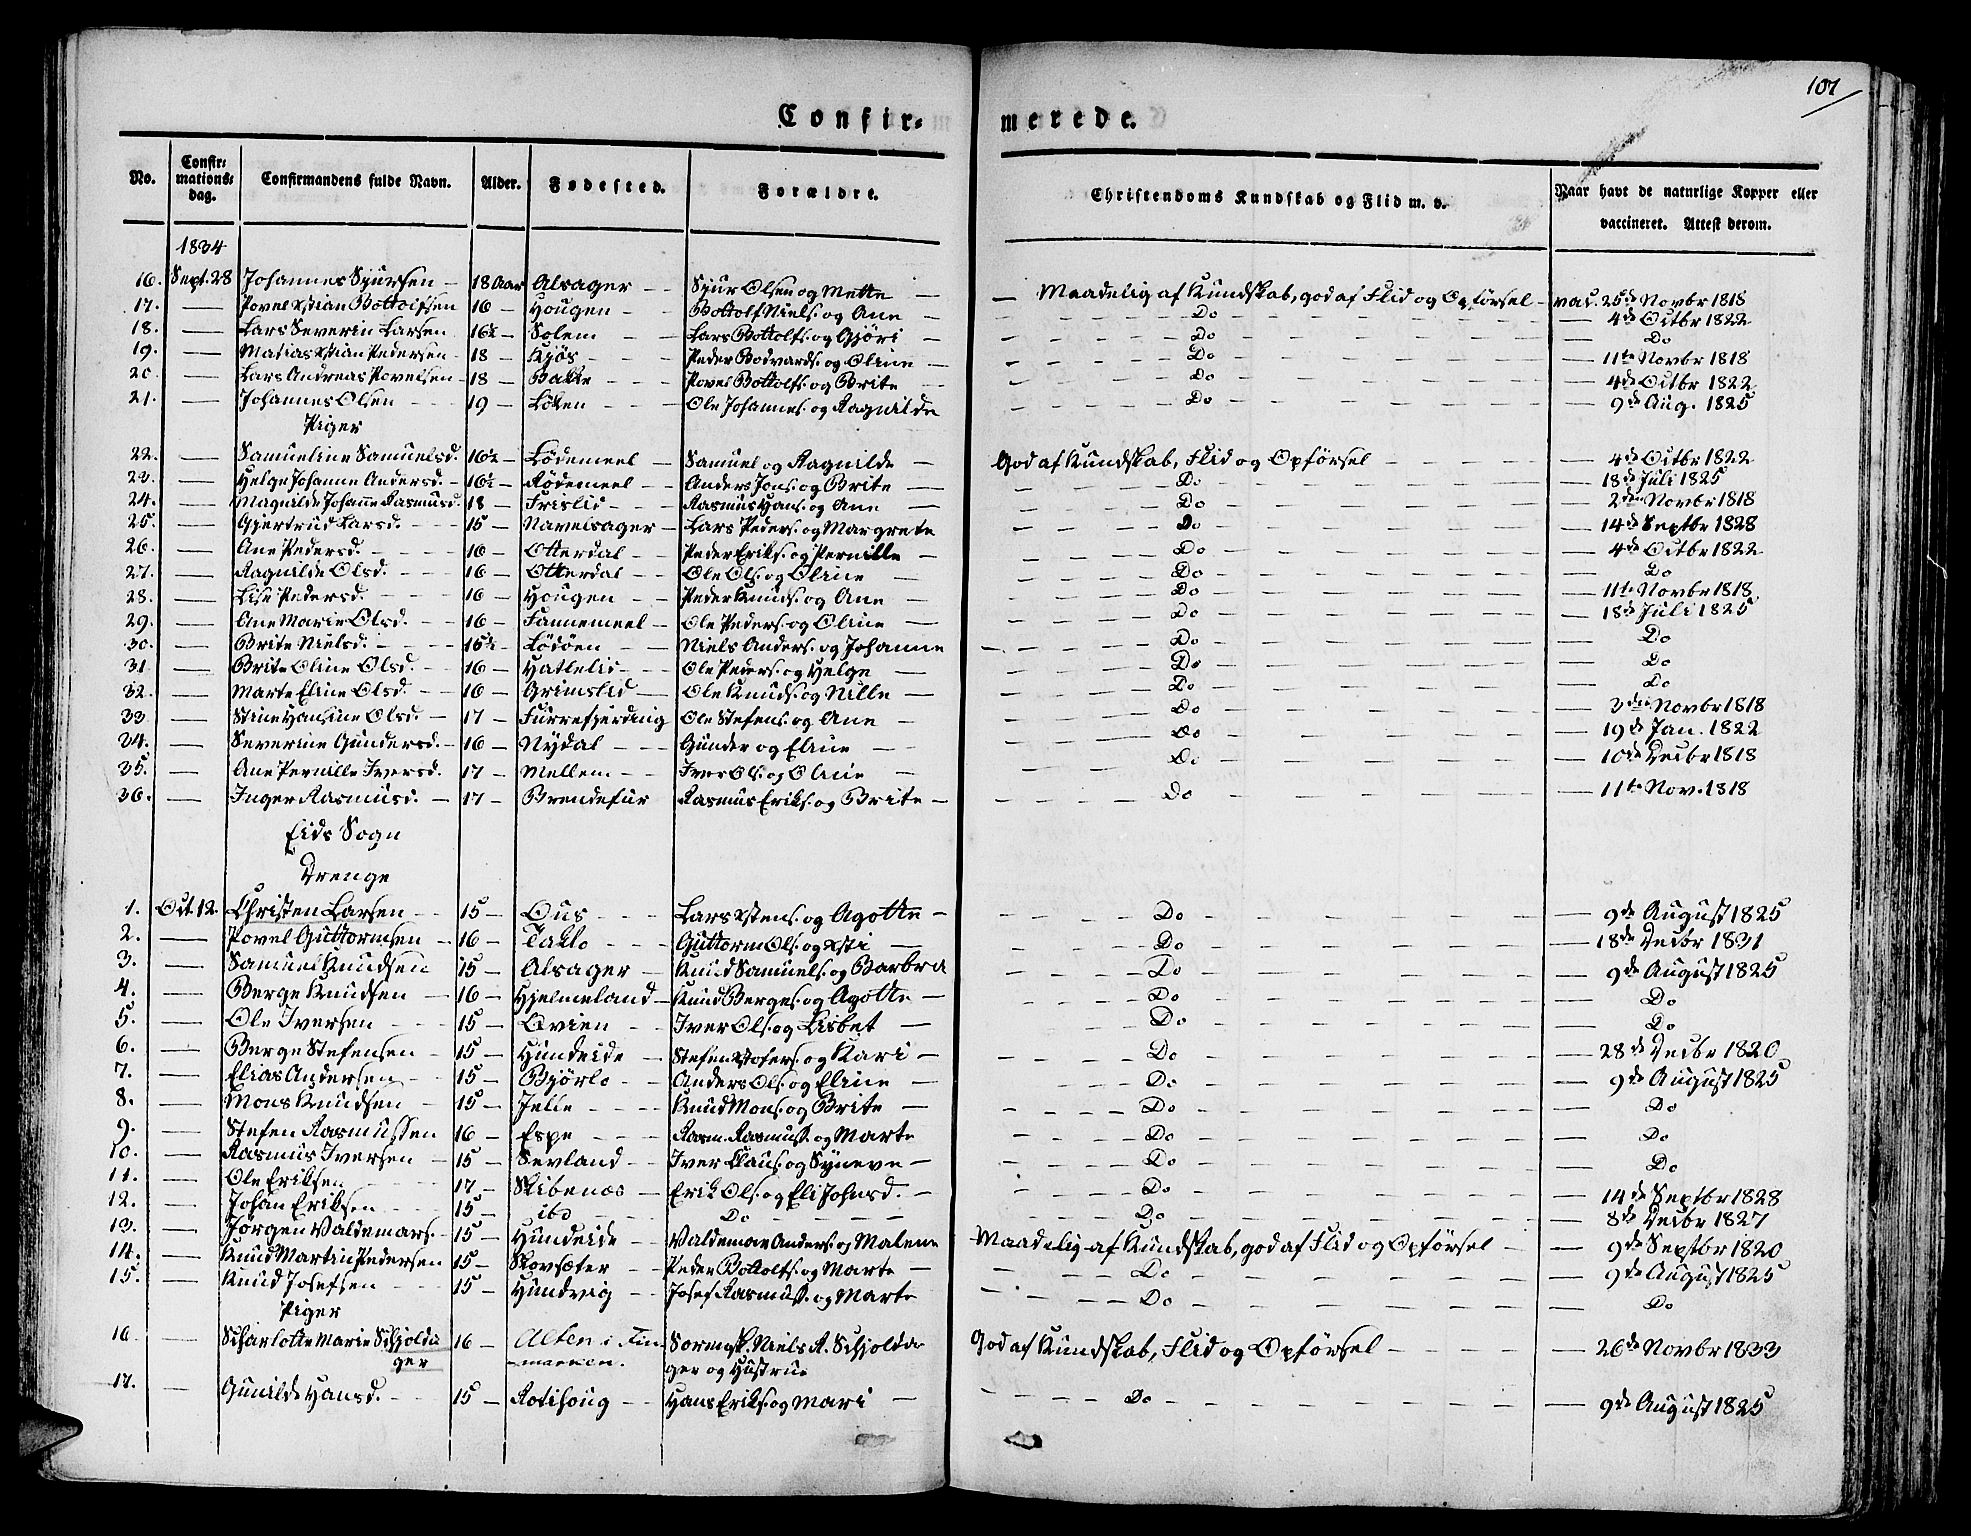 107
Confir- merede.
No. Confirmations-dag. Confirmandens fulde Navn. Alder. Fødested. Forældre. Christendoms Kundskab og Flid m. v. Naar havt de naturlige Kopper eller vaccineret. Attest derom.
1834
16. Sept. 28 Johannes Sjursen — 18 Aar Alsager — Sjur Olsen og Mette — — Maadelig af Kundskab, god af Flid og Opførsel — vac. 25de Novbr 1818
17. — Povel Xstian Bottolfsen 16 — Hougen — Bottolf Niels. og Ane — Do — 4de Octbr 1822
18. — Lars Severin Larsen 16½ — Solem — Lars Bottolfs. og Gjøri — Do — Do
19. — Matias Xstian Pedersen — 18 — Kjøs — Peder Bodvards. og Oline — Do — 11te Novbr 1818
20. — Lars Andreas Povelsen — 18 — Bakke — Povel Bottolfs. og Brite — Do — 4de Octbr 1822
21. — Johannes Olsen — 19 — Løken — Ole Johannes. og Ragnilde Do — 9de Aug. 1825
Piger
22. — Samueline Samuelsd. 16½ — Lødemeel — Samuel og Ragnilde — God af Kundskab, Flid og Opførsel — 4de Octbr 1822
23. — Helge Johanne Andersd. — 16½ — Rødemeel — Anders Jons. og Brite — Do — 18de Juli 1825
24. — Magnilde Johanne Rasmusd. 18 — Frislid — Rasmus Hans. og Ane — Do — 2den Novbr 1818
25. — Gjertrud Larsd. — 15 — Navelsager — Lars Peders. og Margrete Do — 14de Septbr 1828
26. — Ane Pedersd. — 16 — Otterdal — Peder Eriks. og Pernille — Do — 4de Octbr 1822
27. — Ragnilde Olsd. — 16 — Otterdal — Ole Ols. og Oline — Do — Do
28. — Lise Pedersd. — 16 — Hougen — Peder Knuds. og Ane — Do — 11te Novbr 1818
29. — Ane Marie Olsd. — 16 — Fannemeel — Ole Peders. og Oline — Do — 18de Juli 1825
30. — Brite Nielsd. — 15½ — Lødøen — Niels Anders. og Johanne Do — Do
31. — Brite Oline Olsd. — 16 — Hattelid — Ole Peders. og Helge — Do — Do
32. — Marte Eline Olsd. — 16 — Grimslid — Ole Knuds. og Nille — Do — Do
33 — Stine Hansine Olsd. — 17 — Furrefjerding Ole Stefens. og Ane — Do — 3die Novbr 1818
34. — Severine Gundersd. — 16 — Nydal — Gunder og Eline — Do — 19de Jan. 1822
35. — Ane Pernille Iversd. 17 — Mellem — Iver Ols. og Oline — Do — 10de Decbr 1818
36. — Inger Rasmusd. — 17 — Brendefur Rasmus Eriks. og Brite — Do — 11te Nov. 1818
Eids Sogn
Drenge
1. Oct. 12. Christen Larsen — 15 — Ous — Lars Xstens. og Agotte — Do — 9de August 1825
2. — Povel Guttormsen — 16 — Taklo — Guttorm Ols. og Xsti — Do — 18de Decbr 1831
3. — Samuel Knudsen 15 — Alsager — Knud Samuels. og Barbra Do — 9de August 1825
4. — Berge Knudsen — 16 — Hjelmeland — Knud Berges. og Agotte — Do — Do
5. — Ole Iversen — 15 — Qvien — Iver Ols. og Lisbet — Do — Do
6. — Berge Stefensen — 15 — Hundeide — Stefen Xstofers. og Kari — Do — 28de Decbr 1820
7. — Elias Andersen — 15 — Bjørlo — Anders Ols. og Eline — Do — 9de August 1825
8. — Mons Knudsen — 15 — Jelle — Knud Mons. og Brite — Do — Do
9. — Stefen Rasmussen 16 — Espe — Rasm. Rasmuss. og Marte Do — Do
10. — Rasmus Iversen — 15 — Sevland — Iver Claus. og Synneve — Do — Do
11. — Ole Eriksen — 17 — Skibenæs — Erik Ols. og Eli Johnsd. — Do — 14de Septbr 1828
12. — Johan Eriksen — 15 — ibd — Do — Do — 8de Decbr 1827
13. — Jørgen Valdemars. — 15 — Hundeide — Valdemar Anders. og Malene Maadelig af Kundskab, god af Flid og Opførsel — 9de Septbr 1820
14. — Knud Martin Pedersen 15 — Skovsæter — Peder Bottolfs. og Marte — Do — 9de August 1825
15. — Knud Josefsen — 15 — Hundvig — Josef Rasmuss. og Marte Do — Do
Piger
16. — Scharlotte Marie Schjolda 16 — Alten i Fin Sorenskr. Niels A. Schjolda God af Kundskab, Flid og Opførsel — 26de Novbr 1833
ger marken. ger og Hustrue
17. — Gunilde Hansd. — 15 — Rotihoug — Hans Eriks. og Mari — Do — 9de August 1825